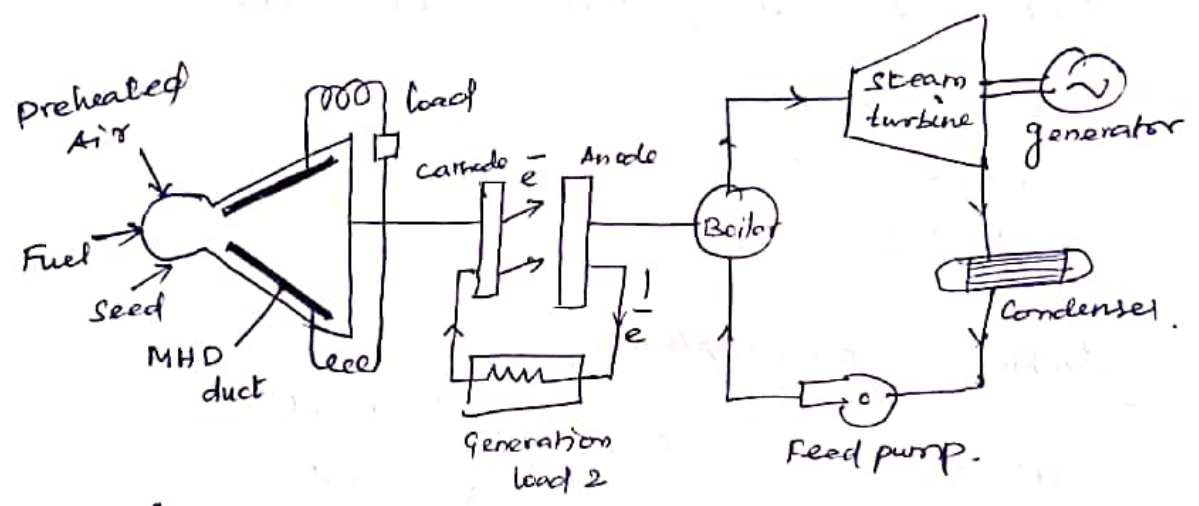 Preheated
Air
Fuel
Seed
MHD
duct
load
Cathode
e⁻
Anode
e⁻
Generation
load 2
Boiler
Steam
turbine
generator
Condenser.
Feed pump.